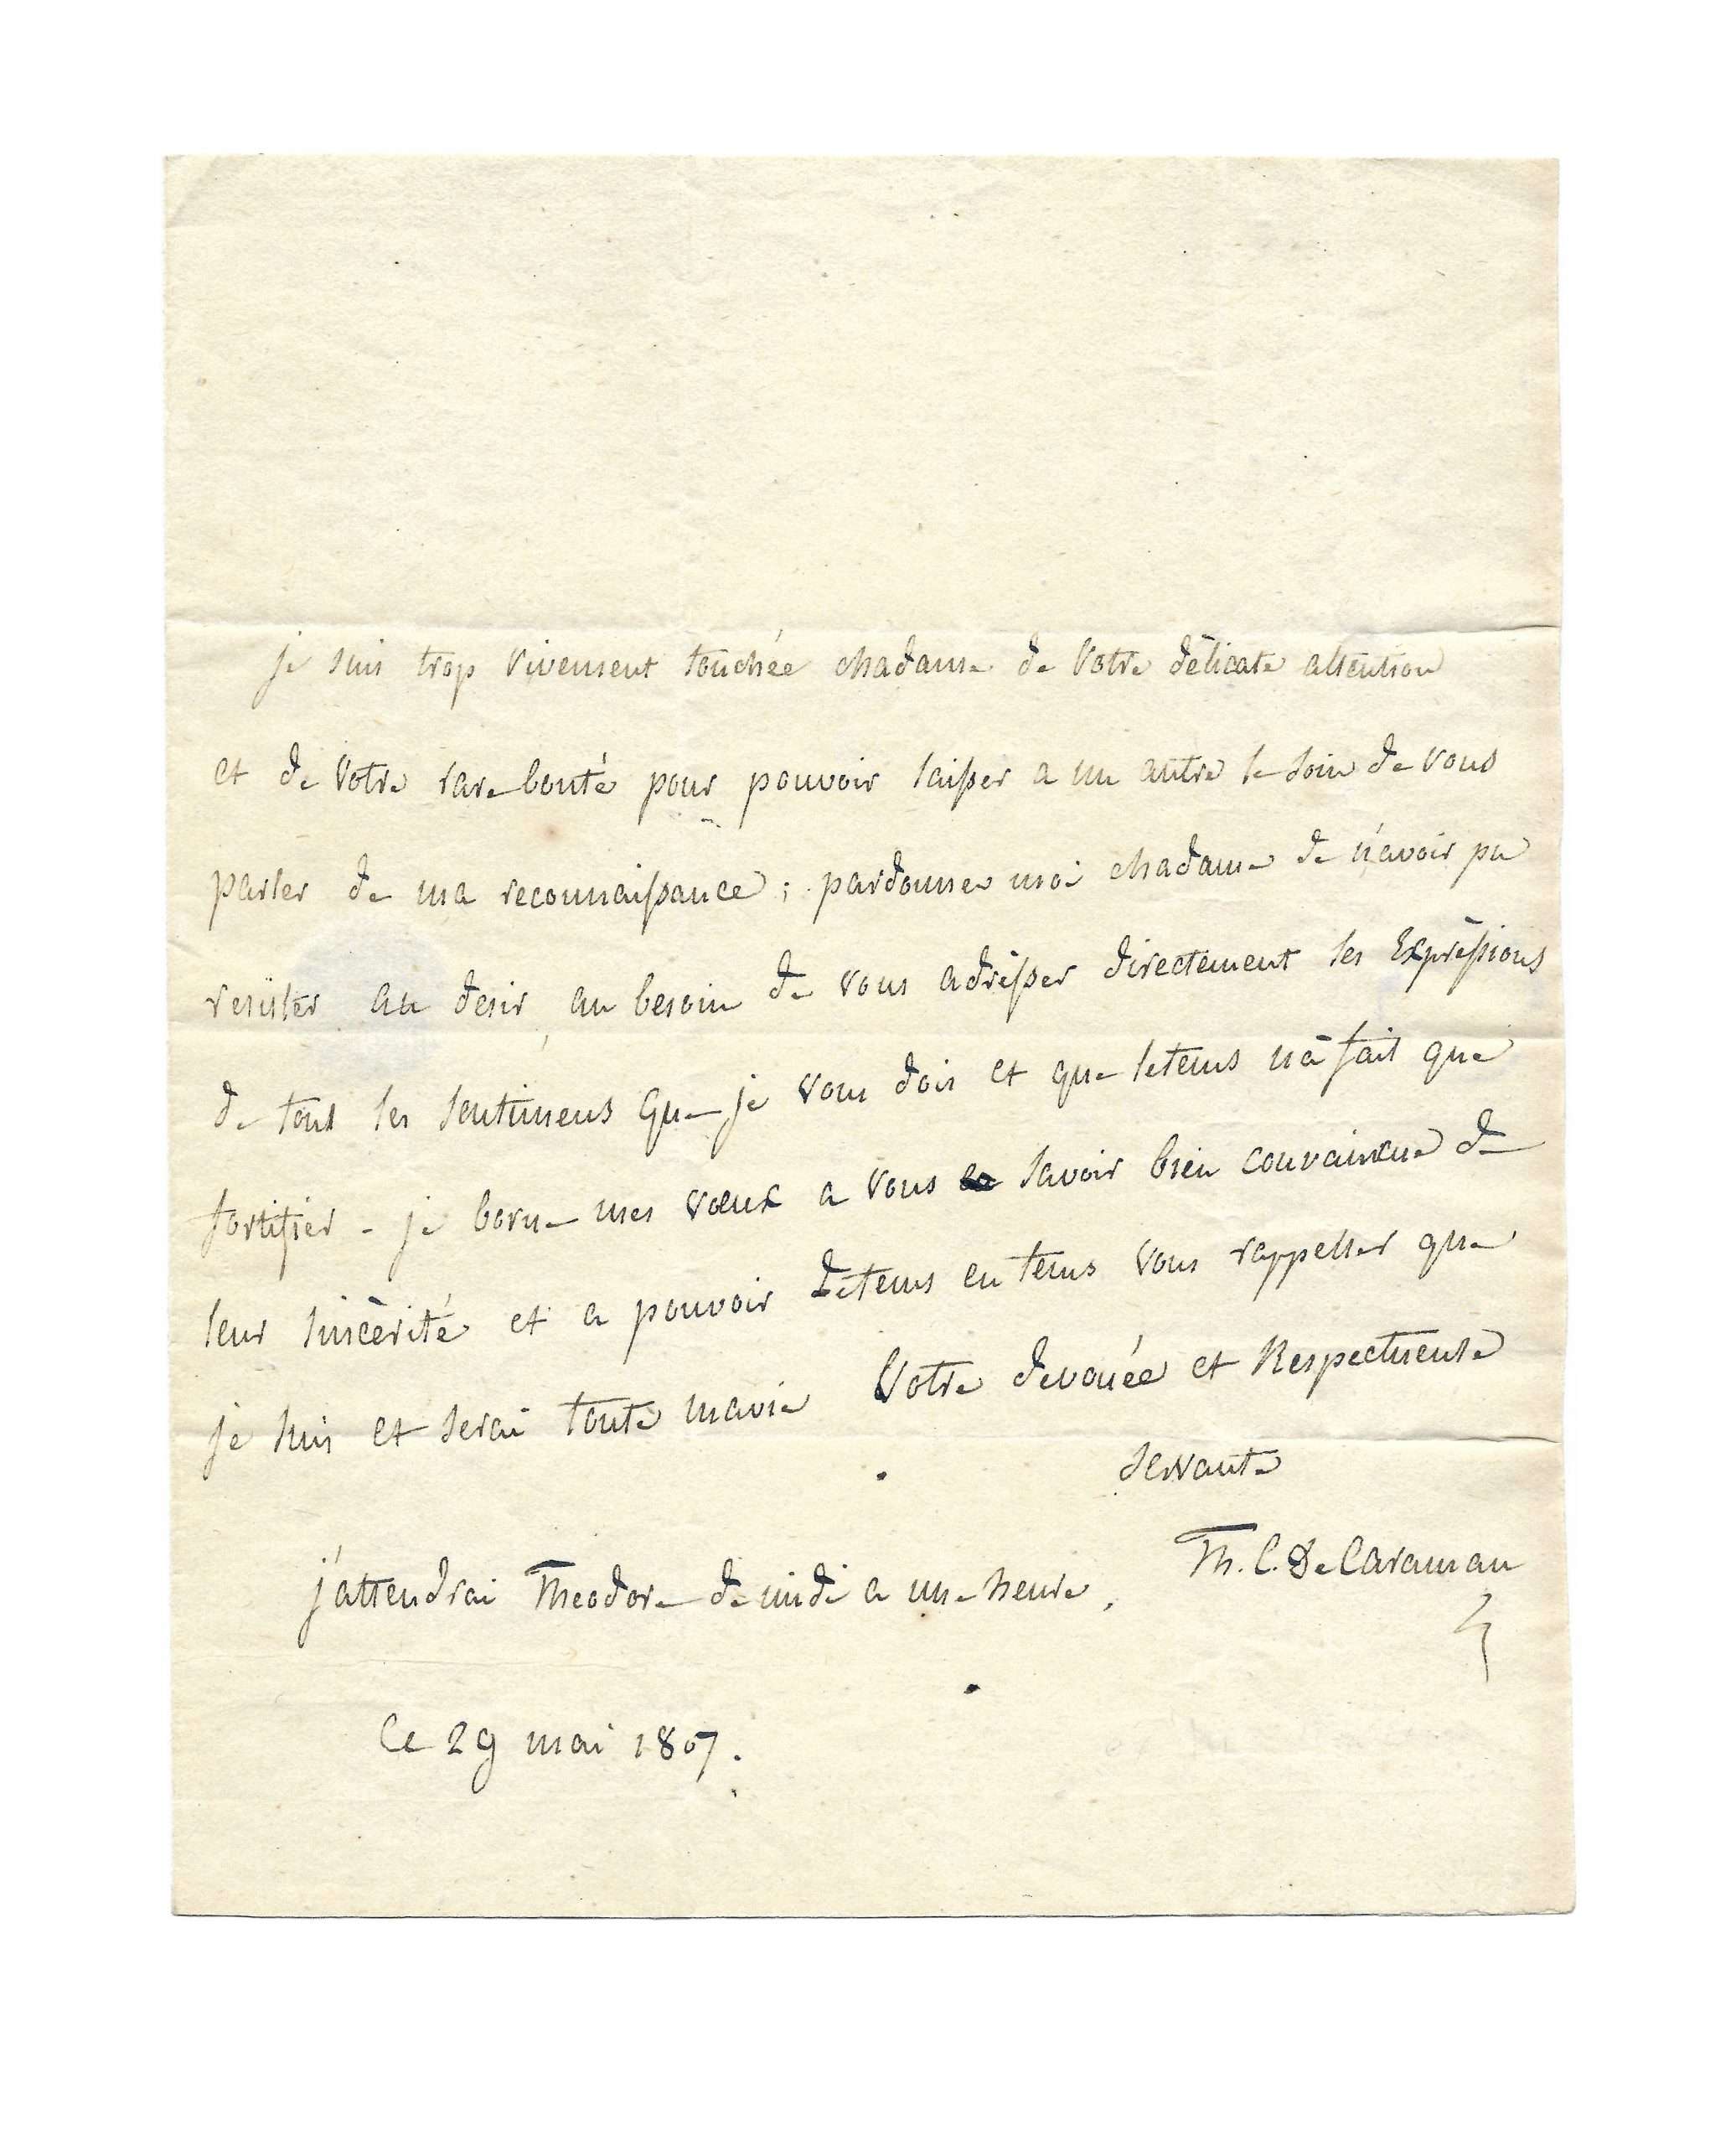 je suis trop vivement touchée Madame de votre délicate attention
et de votre rare bonté pour pouvoir laisser a un autre le soin de vous
parler de ma reconnaissance ; pardonnes moi Madame de n'avoir pu
resister au desir, au besoin de vous adrésser directement les Expréssions
de tous les sentimens que je vous dois et que letems n'a fait que
fortifier - je borne mes vœux a vous savoir bien convaincue de
leur sincérité et a pouvoir detems en tems vous rappeller que
je suis et serai toute mavie Votre devouée et Respectueuse
servante
Th. C. De Caraman
j'attendrai Theodore de midi a une heure,
Ce 29 mai 1807.